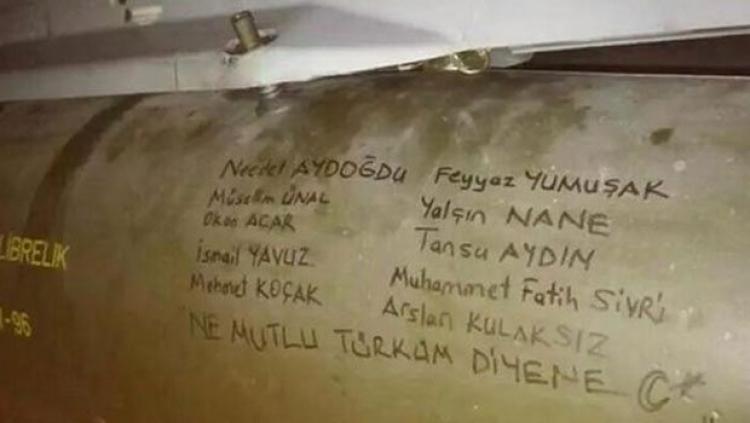 Necdet AYDOĞDU
Müsellim ÜNAL
Okan ACAR
İsmail YAVUZ
Mehmet KOÇAK
Feyyaz YUMUŞAK
Yalçın NANE
Tansu AYDIN
Muhammet Fatih SİVRİ
Arslan KULAKSIZ
NE MUTLU TÜRKÜM DİYENE ☾*
LİBRELIK
-96